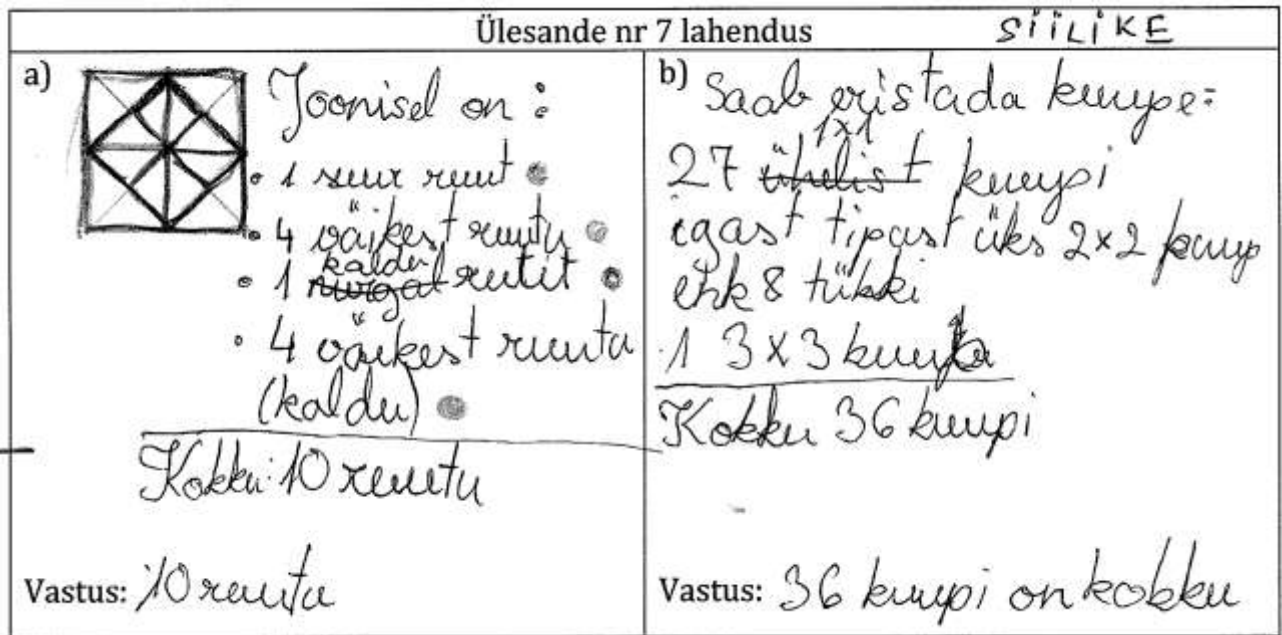 Ülesande nr 7 lahendus SiiLiKE
a)
Joonisel on:
• 1 suur ruut
• 4 väikest ruutu
kaldu
• 1 nurgat ruutit
• 4 väikest ruutu
(kaldu)
Kokku: 10 ruutu
Vastus: 10 ruutu
b) Saab eristada kuupe:
1x1
27 ühelist kuupi
igast tipust üks 2x2 kuup
ehk 8 tükki
1 3x3 kuup
Kokku 36 kuupi
Vastus: 36 kuupi on kokku